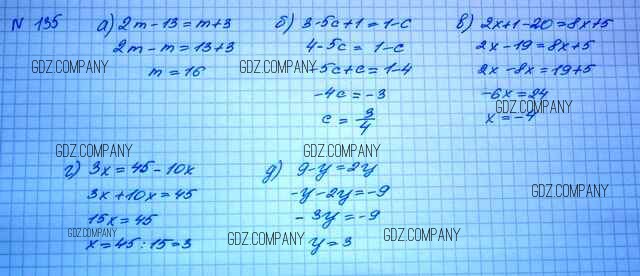 N 135
а) 2m - 13 = m + 3
2m - m = 13 + 3
m = 16
б) 3 - 5c + 1 = 1 - c
4 - 5c = 1 - c
-5c + c = 1 - 4
-4c = -3
c = 3/4
в) 2x + 1 - 20 = 8x + 5
2x - 19 = 8x + 5
2x - 8x = 19 + 5
-6x = 24
x = -4
г) 3x = 45 - 10x
3x + 10x = 45
15x = 45
x = 45 : 15 = 3
д) 9 - y = 2y
-y - 2y = -9
-3y = -9
y = 3
GDZ.COMPANY
GDZ.COMPANY
GDZ.COMPANY
GDZ.COMPANY
GDZ.COMPANY
GDZ.COMPANY
GDZ.COMPANY
GDZ.COMPANY
GDZ.COMPANY